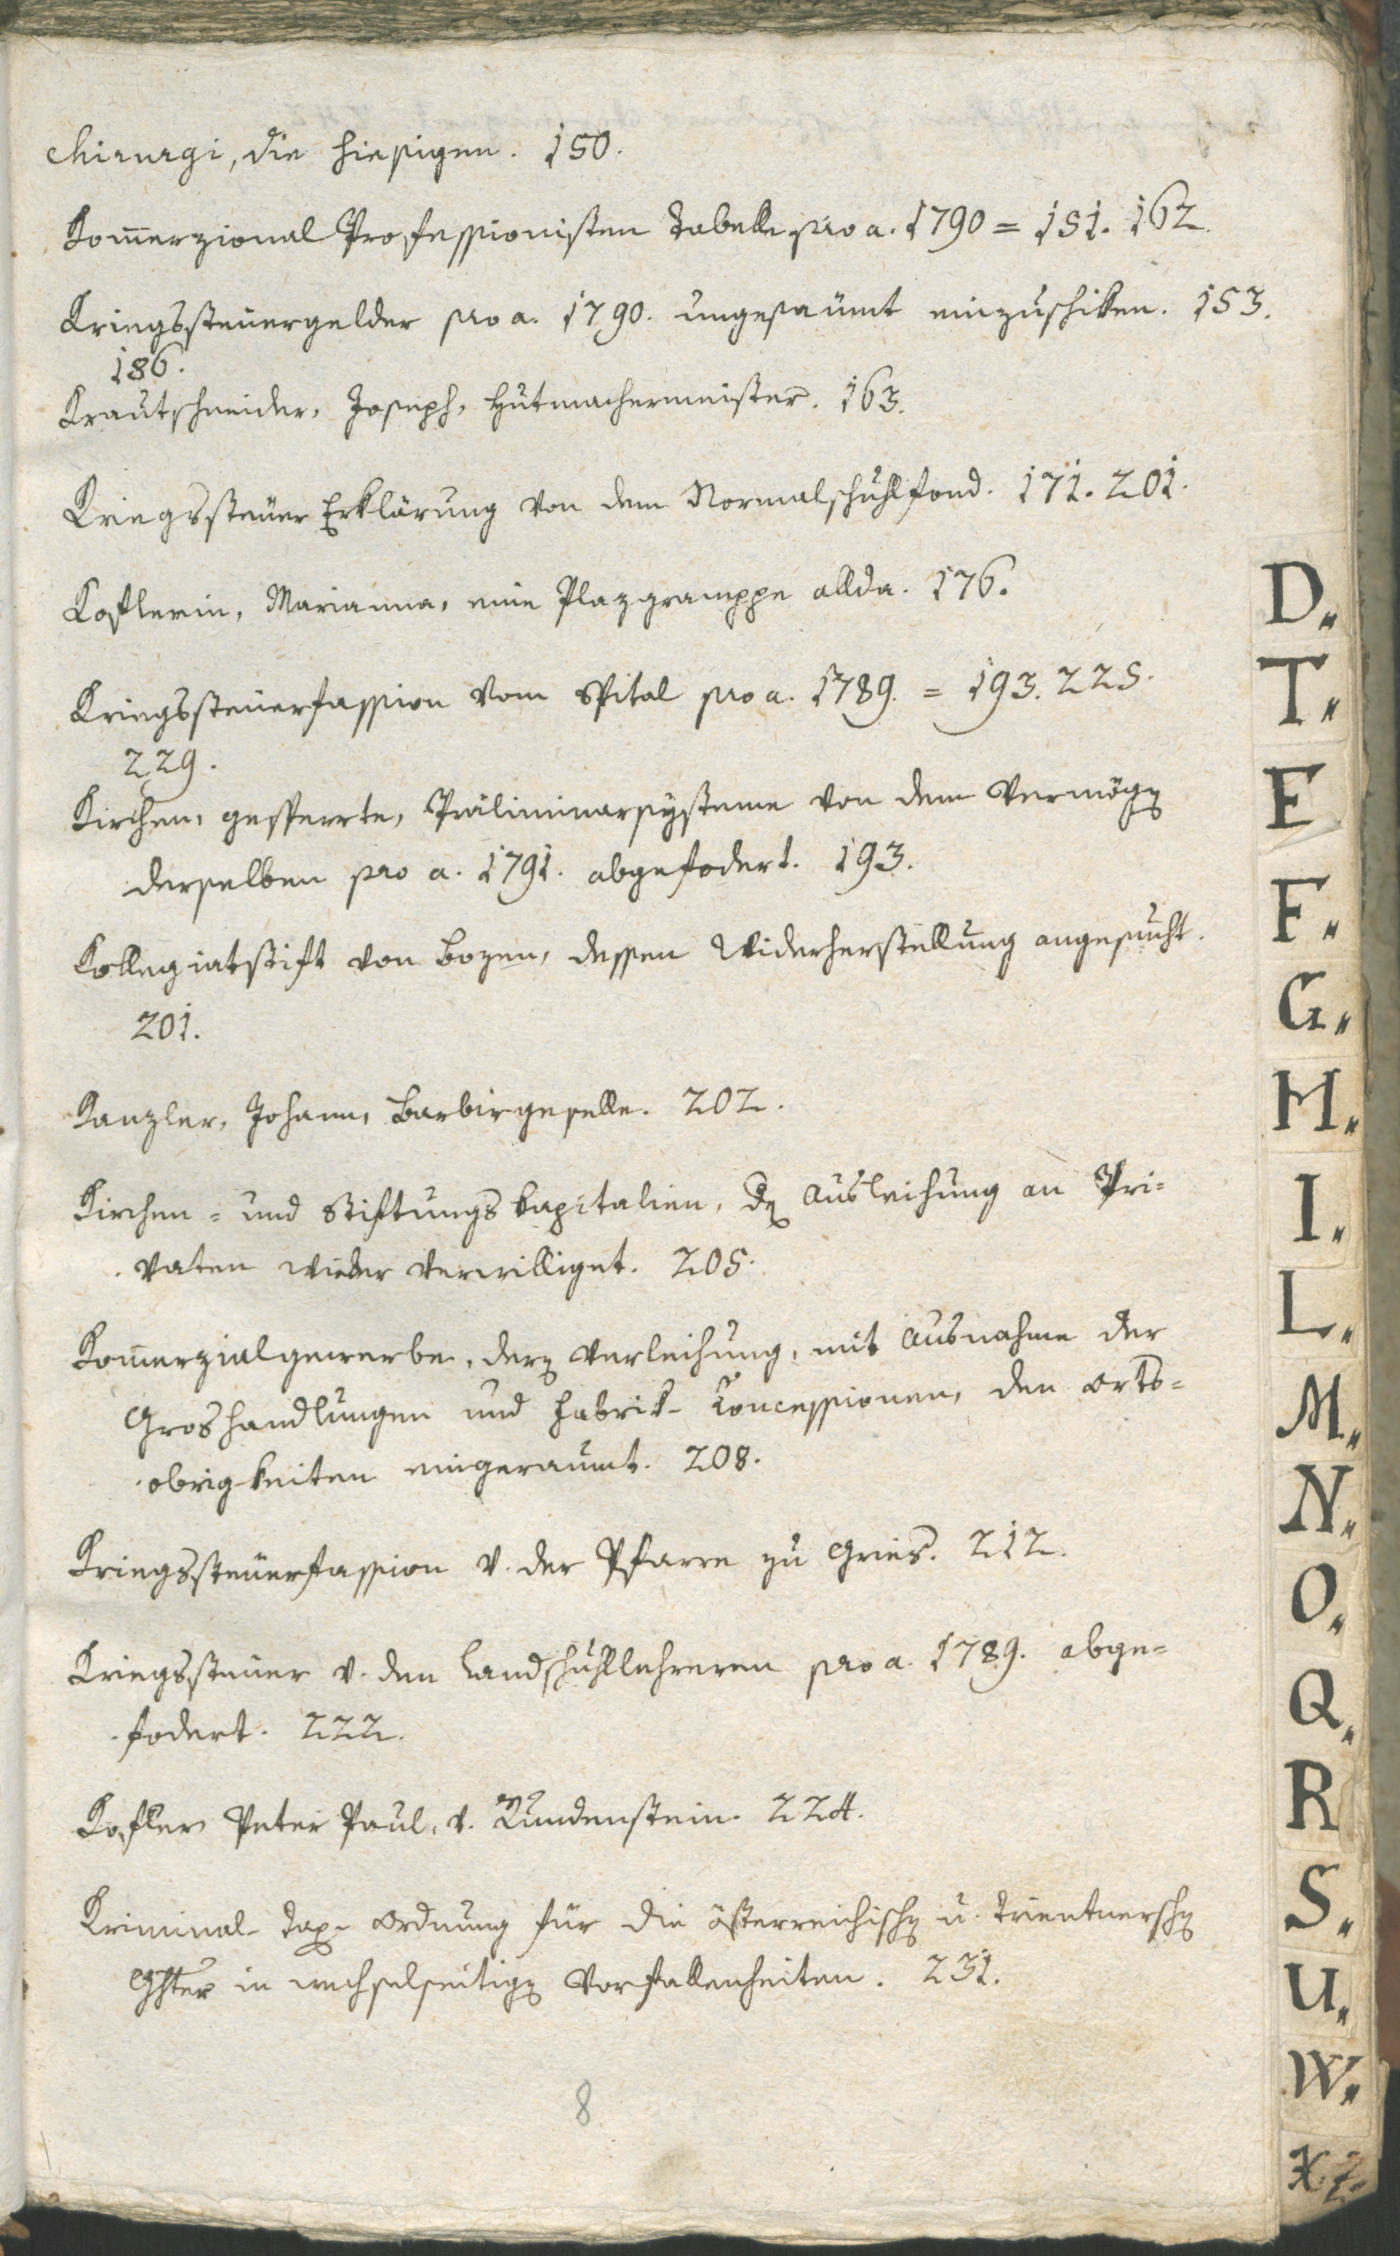 Chirurgi, die hiesigen. 150.
Kom̄erzional Professionisten Tabelle pro a. 1790 = 151. 162.
Kriegssteuergelder pro a. 1790. ungesaümt einzuschiken. 153.
186.
Krautschneider, Joseph, Hutmachermeister. 163.
Kriegssteüer Erklärung von dem Normalschuhlfond. 171. 201.
Koflerin, Marianna, eine Plazgramppe allda. 176.
Kriegssteüerfassion vom Spital pro a. 1789. = 193. 225.
229.
Kirchen, gesperrte, Präliminarsysteme von dem Vermögen
derselben pro a. 1791. abgefodert. 193.
Kollegiatstift von Bozen, dessen Widerherstellung angesucht.
201.
Kanzler, Johann, Barbirgeselle. 202.
Kirchen- und Stiftungs Kapitalien, den Ausleihung an Pri-
vaten wieder verwilliget. 205.
Kom̄erzialgewerbe, deren Verleihung, mit Ausnahme der
Groshandlungen und Fabrik- Koncessionen, den Orts-
obrigkeiten eingeraumt. 208.
Kriegssteüerfassion v. der Pfarre zu Gries. 212.
Kriegssteüer v. den Landschuhllehreren pro a. 1789. abge-
fodert. 222.
Kofler Peter Paul, v. Rundenstein. 224.
Kriminal- Tax- Ordnung für die österreichischen u. Trientnerschen
Ghter in wechselseitigen Vorfallenheiten. 231.
8
D.
T.
E
F.
G.
H.
I.
L.
M.
N.
O.
Q.
R
S.
U.
W.
X. Z.